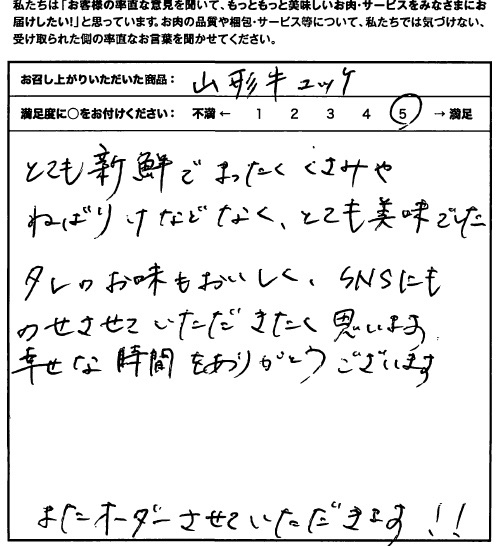 私たちは「お客様の率直な意見を聞いて、もっともっと美味しいお肉・サービスをみなさまにお
届けしたい!」と思っています。お肉の品質や梱包・サービス等について、私たちでは気づけない、
受け取られた側の率直なお言葉を聞かせてください。
お召し上がりいただいた商品： 山形牛ユッケ
満足度に○をお付けください： 不満 ← 1 2 3 4 5 → 満足
とても新鮮でまったくくさみや
ねばりけなどなく、とても美味でした
タレのお味もおいしく、SNSにも
のせさせていただきたく思います
幸せな時間をありがとうございます
またオーダーさせていただきます!!